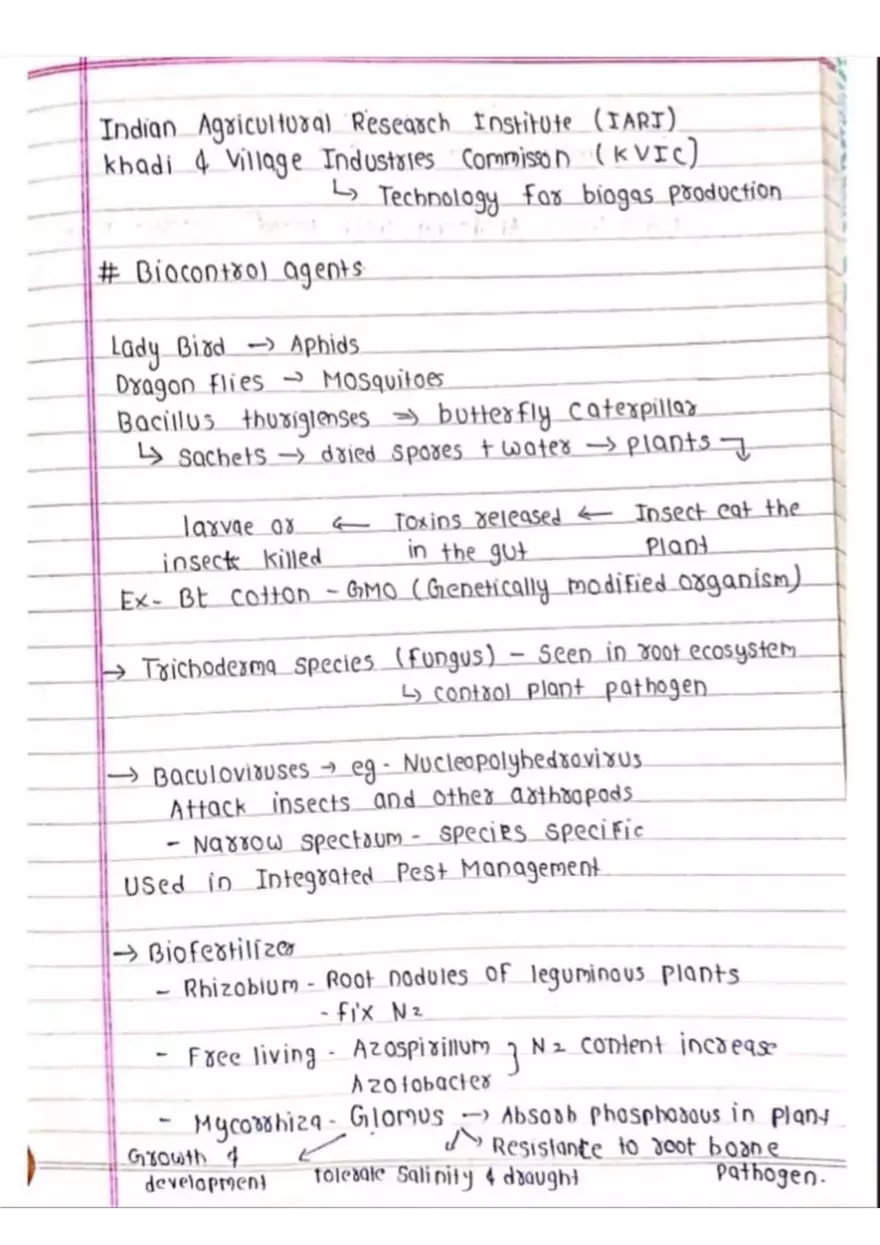 Indian Agricultural Research Institute (IARI)
Khadi & Village Industries Commisson (KVIC)
↳ Technology for biogas production
# Biocontrol agents
Lady Bird → Aphids
Dragon flies → Mosquitoes
Bacillus thuriglenses ⇒ butterfly caterpillar
↳ Sachets → dried spores + water → plants ↴
larvae or ← Toxins released ← Insect eat the
insect killed in the gut Plant
Ex- Bt cotton - GMO (Genetically modified organism)
→ Trichoderma species (fungus) - Seen in root ecosystem
↳ control plant pathogen
→ Baculoviruses → eg - Nucleopolyhedrovirus
Attack insects and other arthropods
- Narrow spectrum - species specific
Used in Integrated Pest Management
→ Biofertilizer
- Rhizobium - Root nodules of leguminous plants
- fix N2
- Free living - Azospirillum } N2 content increase
Azotobacter
- Mycorrhiza - Glomus → Absorb phosphorous in plant
Growth & Resistance to root borne
development tolerale Salinity & draught pathogen.